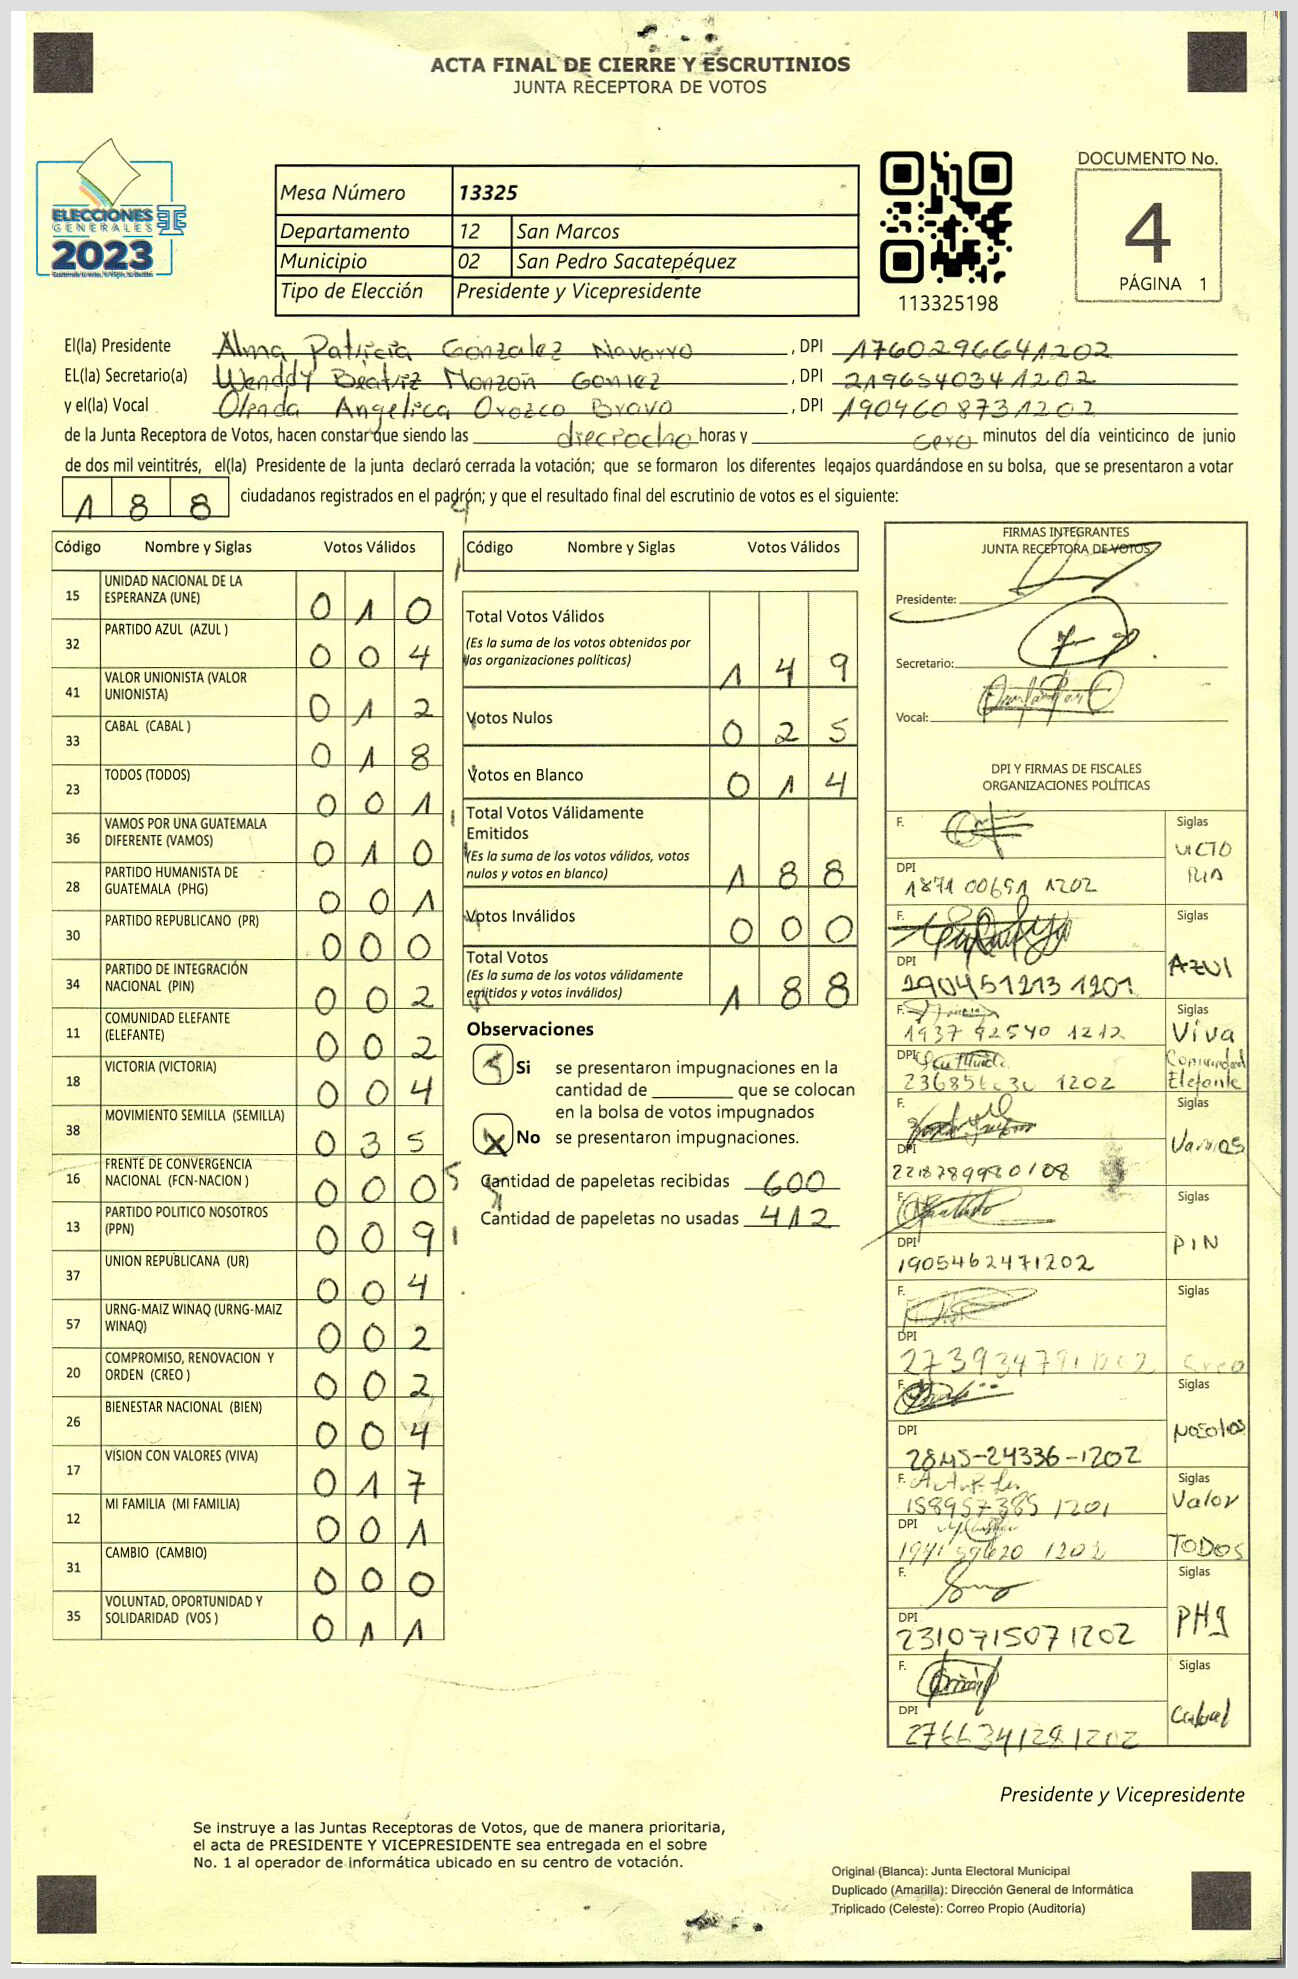 ACTA FINAL DE CIERRE Y ESCRUTINIOS
JUNTA RECEPTORA DE VOTOS
ELECCIONES
GENERALES
2023
Mesa Número 13325
Departamento 12 San Marcos
Municipio 02 San Pedro Sacatepéquez
Tipo de Elección Presidente y Vicepresidente
113325198
DOCUMENTO No.
4
PÁGINA 1
El(la) Presidente Alma Patricia Gonzalez Navarro, DPI 1760296641202
EL(la) Secretario(a) Wenddy Beatiz Monzon Gomez, DPI 2196540341202
y el(la) Vocal Olenda Angelica Orozco Bravo, DPI 1904608731202
de la Junta Receptora de Votos, hacen constar que siendo las dieciocho horas y cero minutos del día veinticinco de junio
de dos mil veintitrés, el(la) Presidente de la junta declaró cerrada la votación; que se formaron los diferentes legajos guardándose en su bolsa, que se presentaron a votar
188 ciudadanos registrados en el padrón; y que el resultado final del escrutinio de votos es el siguiente:
Código Nombre y Siglas Votos Válidos
15 UNIDAD NACIONAL DE LA ESPERANZA (UNE) 010
32 PARTIDO AZUL (AZUL ) 004
41 VALOR UNIONISTA (VALOR UNIONISTA) 012
33 CABAL (CABAL ) 018
23 TODOS (TODOS) 001
36 VAMOS POR UNA GUATEMALA DIFERENTE (VAMOS) 010
28 PARTIDO HUMANISTA DE GUATEMALA (PHG) 001
30 PARTIDO REPUBLICANO (PR) 000
34 PARTIDO DE INTEGRACIÓN NACIONAL (PIN) 002
11 COMUNIDAD ELEFANTE (ELEFANTE) 002
18 VICTORIA (VICTORIA) 004
38 MOVIMIENTO SEMILLA (SEMILLA) 035
16 FRENTE DE CONVERGENCIA NACIONAL (FCN-NACION ) 000
13 PARTIDO POLITICO NOSOTROS (PPN) 009
37 UNION REPUBLICANA (UR) 004
57 URNG-MAIZ WINAQ (URNG-MAIZ WINAQ) 002
20 COMPROMISO, RENOVACION Y ORDEN (CREO ) 002
26 BIENESTAR NACIONAL (BIEN) 004
17 VISION CON VALORES (VIVA) 017
12 MI FAMILIA (MI FAMILIA) 001
31 CAMBIO (CAMBIO) 000
35 VOLUNTAD, OPORTUNIDAD Y SOLIDARIDAD (VOS ) 011
Código Nombre y Siglas Votos Válidos
Total Votos Válidos 149
(Es la suma de los votos obtenidos por
las organizaciones políticas)
Votos Nulos 025
Votos en Blanco 014
Total Votos Válidamente
Emitidos 188
(Es la suma de los votos válidos, votos
nulos y votos en blanco)
Votos Inválidos 000
Total Votos 188
(Es la suma de los votos válidamente
emitidos y votos inválidos)
Observaciones
Si se presentaron impugnaciones en la
cantidad de ________ que se colocan
en la bolsa de votos impugnados
X No se presentaron impugnaciones.
Cantidad de papeletas recibidas 600
Cantidad de papeletas no usadas 412
FIRMAS INTEGRANTES
JUNTA RECEPTORA DE VOTOS
Presidente:
Secretario:
Vocal:
DPI Y FIRMAS DE FISCALES
ORGANIZACIONES POLÍTICAS
F. Siglas VICTO RIA
DPI 1871 00691 1202
F. Siglas AZUl
DPI 290451213 1201
F. Siglas Viva
1937 92540 1212
DPI Comunidad Elefante
F. Siglas Vamos
DPI 2218789980108
F. Siglas PIN
DPI 1905462471202
F. Siglas Creo
DPI
F. Siglas
DPI 2845-24336-1202
F. Siglas Valor
158957385 1201
DPI TODOS
F. Siglas PHg
DPI 2310715071202
F. Siglas Cabal
DPI 2766341281202
Presidente y Vicepresidente
Se instruye a las Juntas Receptoras de Votos, que de manera prioritaria,
el acta de PRESIDENTE Y VICEPRESIDENTE sea entregada en el sobre
No. 1 al operador de informática ubicado en su centro de votación.
Original (Blanca): Junta Electoral Municipal
Duplicado (Amarilla): Dirección General de Informática
Triplicado (Celeste): Correo Propio (Auditoría)